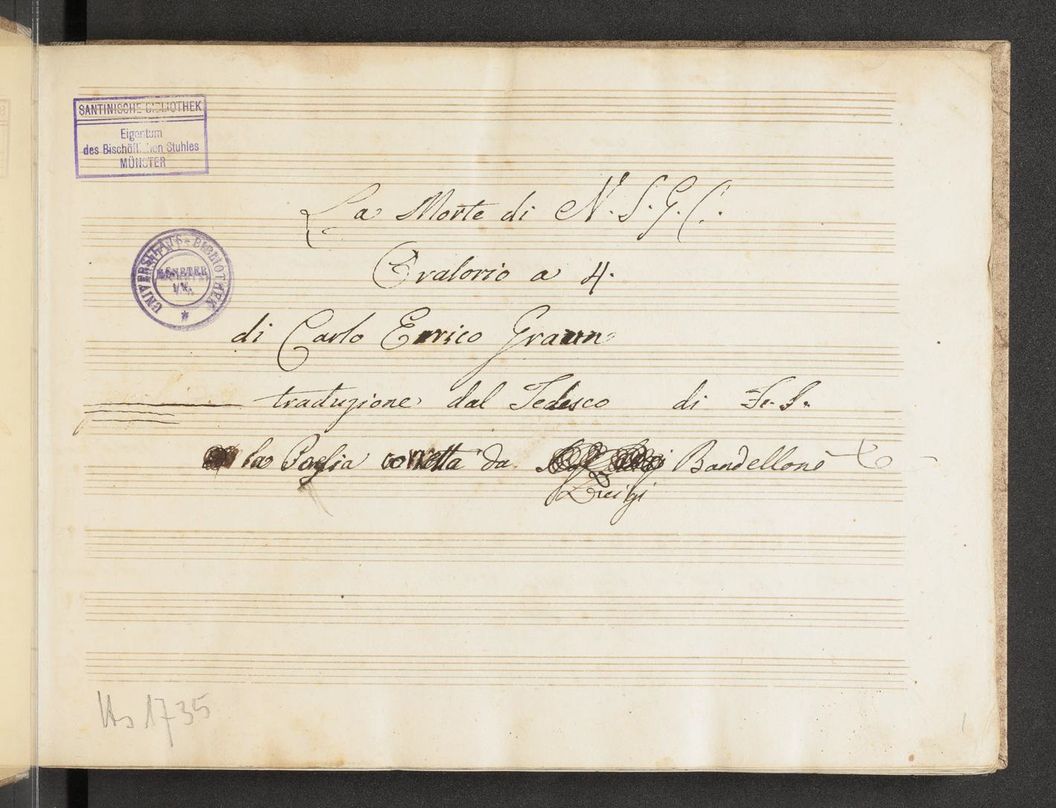 SANTINISCHE BIBLIOTHEK
Eigentum
des Bischöflichen Stuhles
MÜNSTER
UNIVERSITÄTS-BIBLIOTHEK
MÜNSTER
i/W.
*
La Morte di N. S. G. C.
Oratorio a 4.
di Carlo Errico Graun
traduzione dal Tedesco di
la Poesia corretta da Bandelloni
Luigi
Hs 1735
1